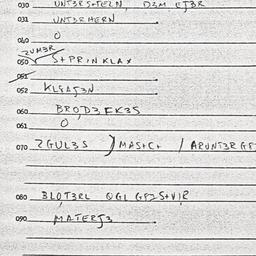 030 UNT3RS+TELN, D3M EJ3R
031 UNT3RHERN
040 O
ZUM3R
050 S+PRINKLAX
051
052 KLEAJ3N
060 BROD3 EK3S
061 O
070 ZGUL3S ) MAS+C+ / ARUNT3R GE
080 BLOT3RL OGL GEJS+VIR
090 MATERJ3